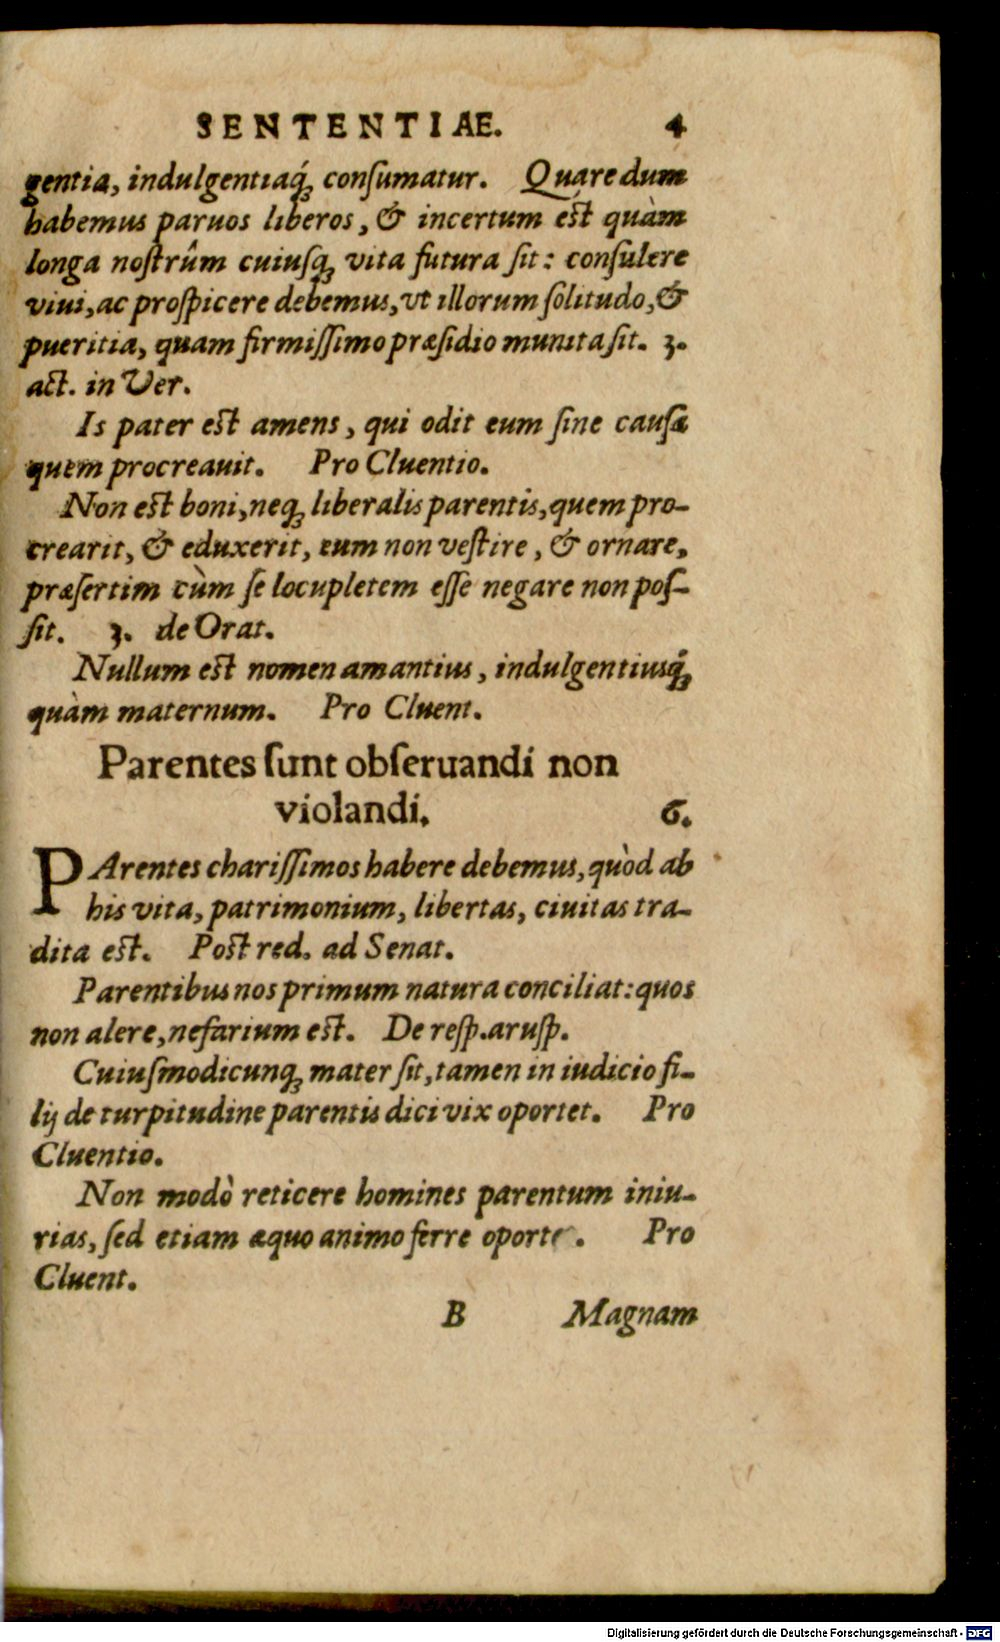 SENTENTIAE. 4
gentia, indulgentiaq́ꝫ conſumatur. Quare dum
habemus paruos liberos, & incertum est quàm
longa noſtrûm cuiuſqꝫ vita futura ſit: conſulere
viui, ac proſpicere debemus, vt illorum ſolitudo, &
pueritia, quam firmiſſimo præſidio munita ſit. 3.
act. in Ver.
Is pater est amens, qui odit eum ſine cauſa
quem procreauit. Pro Cluentio.
Non est boni, neqꝫ liberalis parentis, quem pro-
crearit, & eduxerit, eum non veſtire, & ornare,
præſertim cùm ſe locupletem eſſe negare non poſ-
ſit. 3. de Orat.
Nullum est nomen amantius, indulgentiusq́ꝫ
quàm maternum. Pro Cluent.
Parentes ſunt obſeruandi non
violandi. 6.
PArentes chariſſimos habere debemus, quòd ab
his vita, patrimonium, libertas, ciuitas tra-
dita est. Post red. ad Senat.
Parentibus nos primum natura conciliat: quos
non alere, nefarium est. De reſp. aruſp.
Cuiuſmodicunqꝫ mater ſit, tamen in iudicio fi-
lij de turpitudine parentis dici vix oportet. Pro
Cluentio.
Non modò reticere homines parentum iniu-
rias, ſed etiam æquo animo ferre oporte . Pro
Cluent.
B Magnam
Digitalisierung gefördert durch die Deutsche Forschungsgemeinschaft - DFG